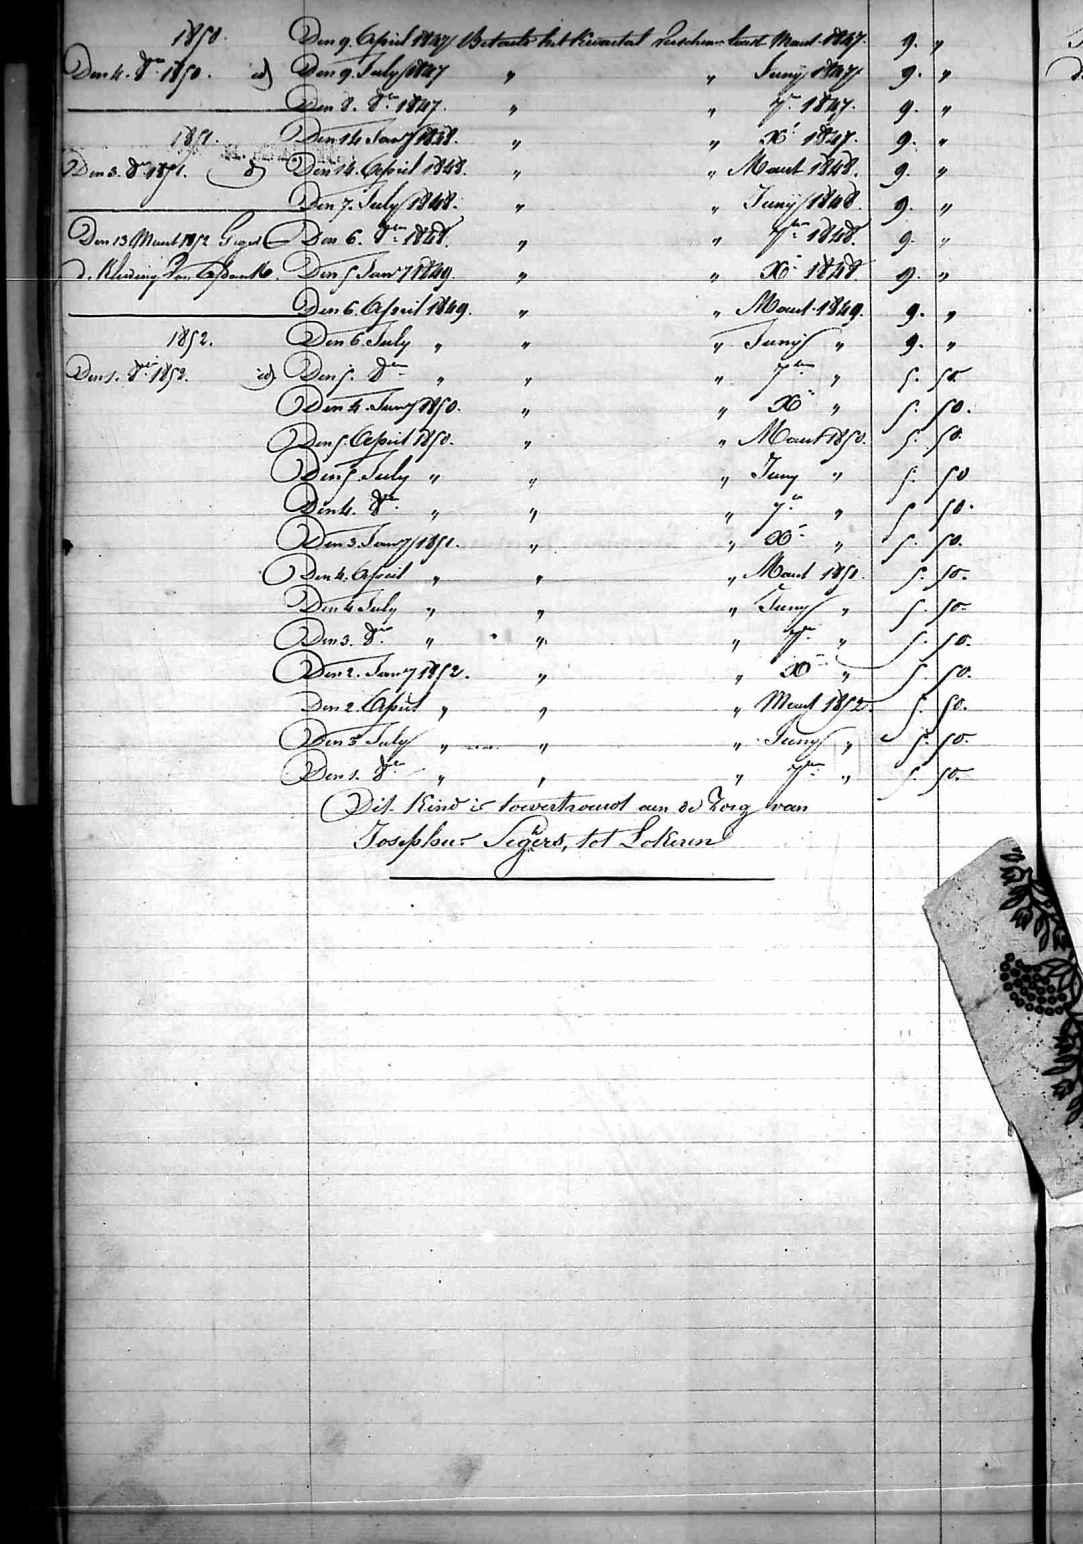 1850. Den 9. April 1847 Betaelt het kwartal verschenen laest Maert 1847. 9. "
Den 4. 8re 1850. id) Den 9. July 1847 " " Junij 1847 9. "
Den 8. 8re 1847. " " 7re 1847. 9. "
1851. Den 14 Janry 1848. " " Xr 1847. 9. "
Den 3. 8re 1851. d) Den 14. April 1848. " " Maert 1848. 9. "
Den 7. July 1848. " " Junij 1848. 9. "
Den 13 Maert 1852 Den 6. 8bre 1848. " " 7bre 1848. 9. "
d. Kleeding Den 5 Janry 1849 " " Xr 1848. 9. "
Den 6. April 1849. " " Maert 1849. 9. "
1852. Den 6. July " " " Junij " 9. "
Den 1. 8re 1852. id) Den 5. 8bre " " " 7bre " 5. 50.
Den 4. Janry 1850. " " Xr " 5. 50.
Den 5. April 1850. " " Maert 1850. 5. 50.
Den 5 July " " " Juny " 5. 50
Den 4. 8re " " " 7re " 5 50.
Den 3. Janry 1851. " " Xr " 5. 50.
Den 4. April " " " Maert 1851. 5. 50.
Den 4 July " " " Juny " 5. 50.
Den 3. 8re " " " 7re " 5. 50.
Den 2. Janry 1852. " " Xr " 5. 50.
Den 2. April " " " Maert 1852. 5. 50.
Den 3 July " " " Juny " 5. 50.
Den 1. 8re " " " 7bre " 5. 50.
Dit Kind is toevertrouwt aen de Zorg van
Josephus Segers, tot Lokeren